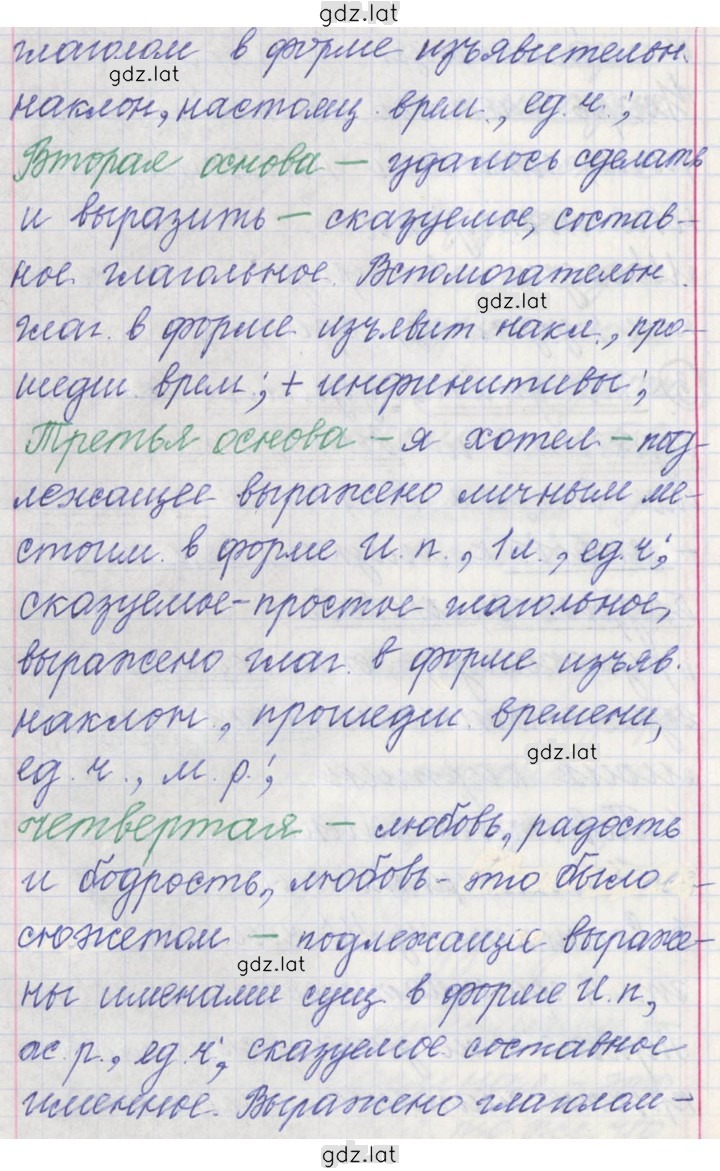 gdz.lat
глаголом в форме изъявительн.
gdz.lat
наклон., настоящ. врем., ед.ч.;
Вторая основа – удалось сделать
и выразить – сказуемое, состав-
ное глагольное. Вспомогательн.
gdz.lat
глаг. в форме изъявит накл., про-
шедш. врем.; + инфинитивы;
Третья основа – я хотел – под-
лежащее выражено личным ме-
стоим. в форме И.п., 1л., ед.ч;
сказуемое-простое глагольное,
выражено глаг. в форме изъяв.
наклон., прошедш. времени,
gdz.lat
ед.ч., м.р.;
четвертая – любовь, радость
и бодрость, любовь - это было
сюжетом – подлежащие выраже-
gdz.lat
ны именами сущ в форме И.п,
ж.р., ед.ч; сказуемое составное
именное. Выражено глаголом-
gdz.lat